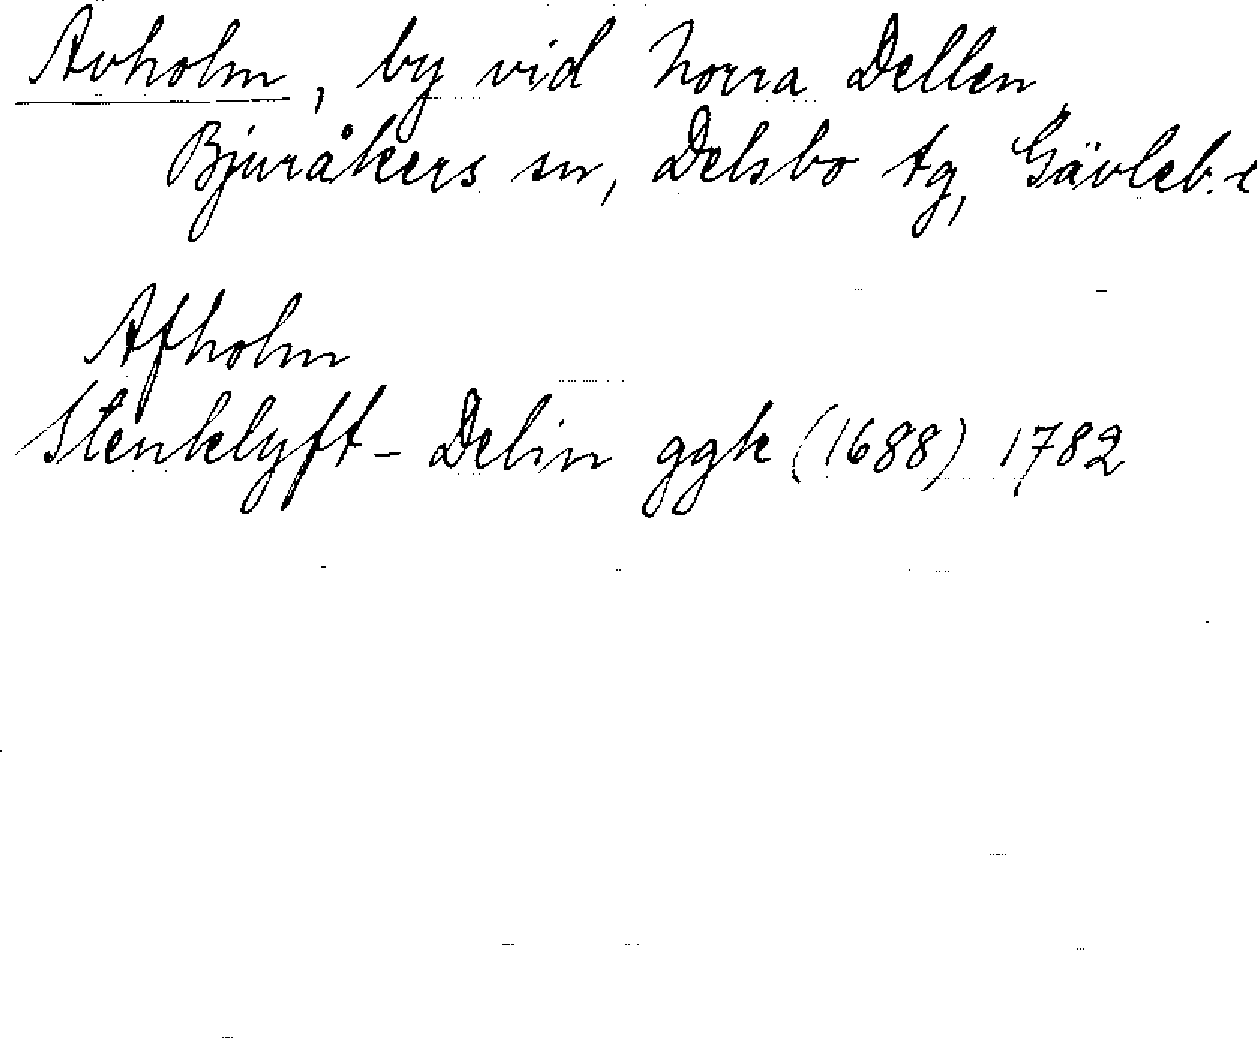 Avholm, by vid Norra Dellen,
Bjuråkers sn, Delsbo tg, Gävleb.
Afholm
Stenklyft - Delin ggk (1688) 1782